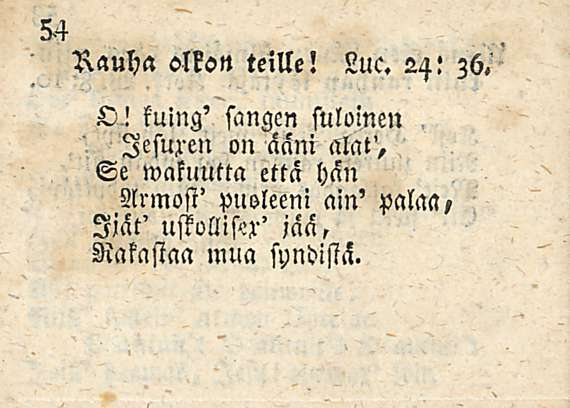 54
Rauha olkon teille! Luc. 24: 36.
O! kuing' sangen suloinen
Jesuxen on ääni alat',
Se wakuutta että hän
Armost' puoleeni ain' palaa,
Ijät' uskollisex' jää,
Rakastaa mua syndistä.